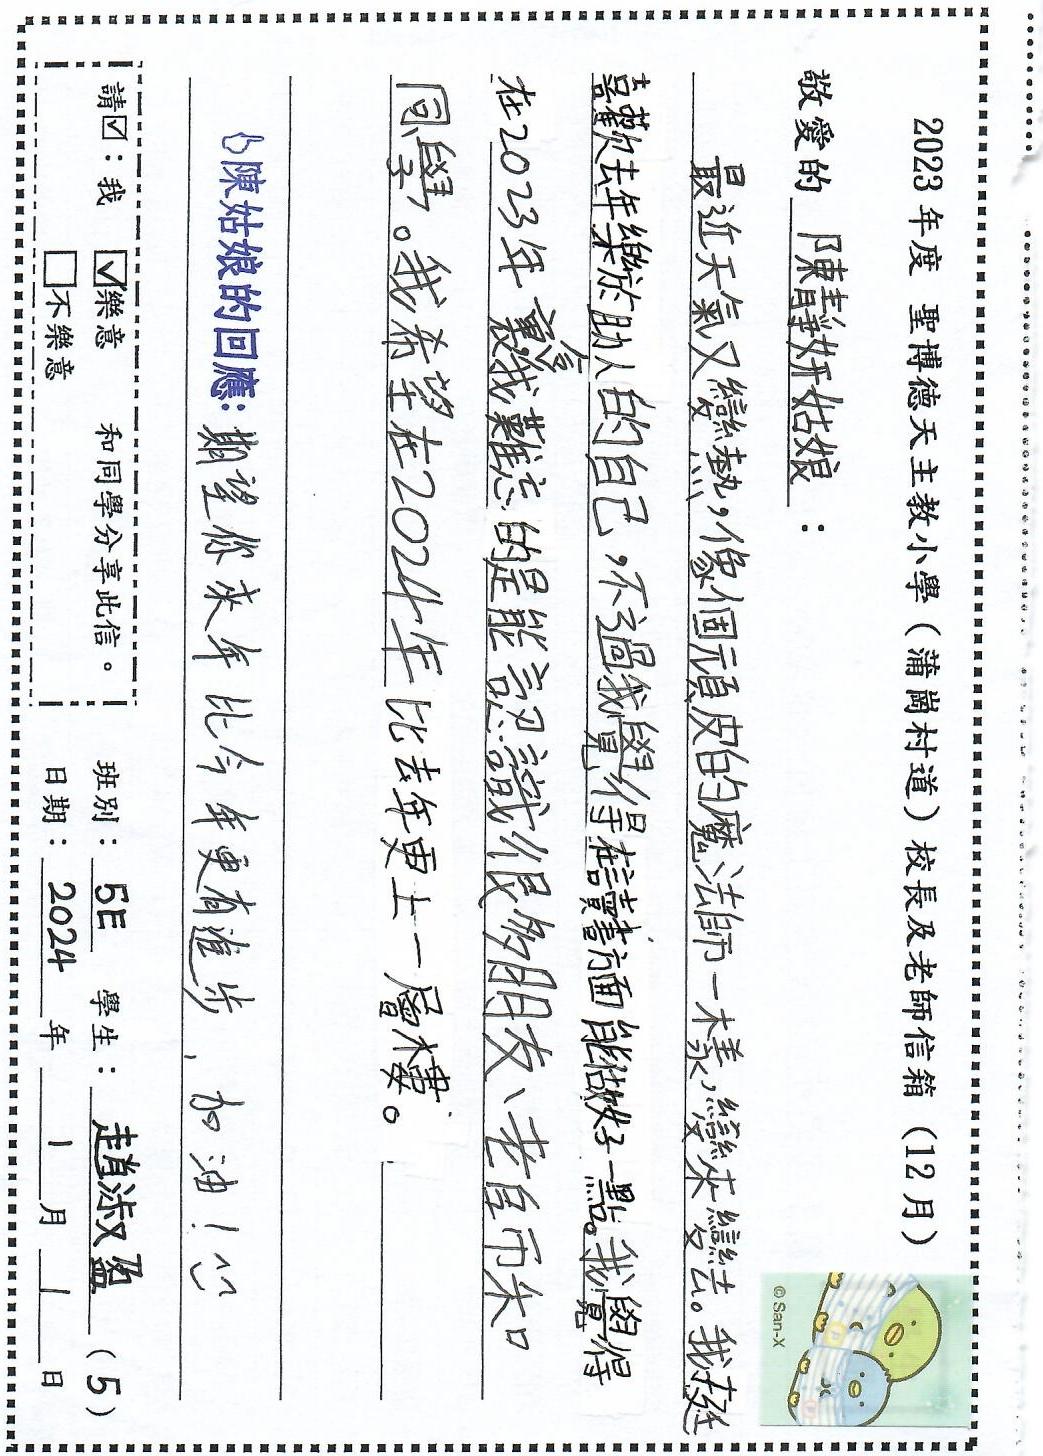 2023年度 聖博德天主教小學（蒲崗村道）校長及老師信箱（12月）
敬愛的 陳靜妍姑娘 ：
最近天氣又變熱，像個頑皮的魔法師一樣，變來變去。我挺
喜歡去年樂於助人的自己，不過我覺得在讀書方面能做好一點。我覺得
在2023年裏令我難忘的是能認識很多朋友、老師和
同學。我希望在2024年比去年更上一層樓。
陳姑娘的回應: 期望你來年比今年更有進步、加油！
© San-X
請☑：我 ☑樂意 和同學分享此信。
☐不樂意
班別：5E 學生：趙淑盈（5）
日期：2024 年 1 月 1 日